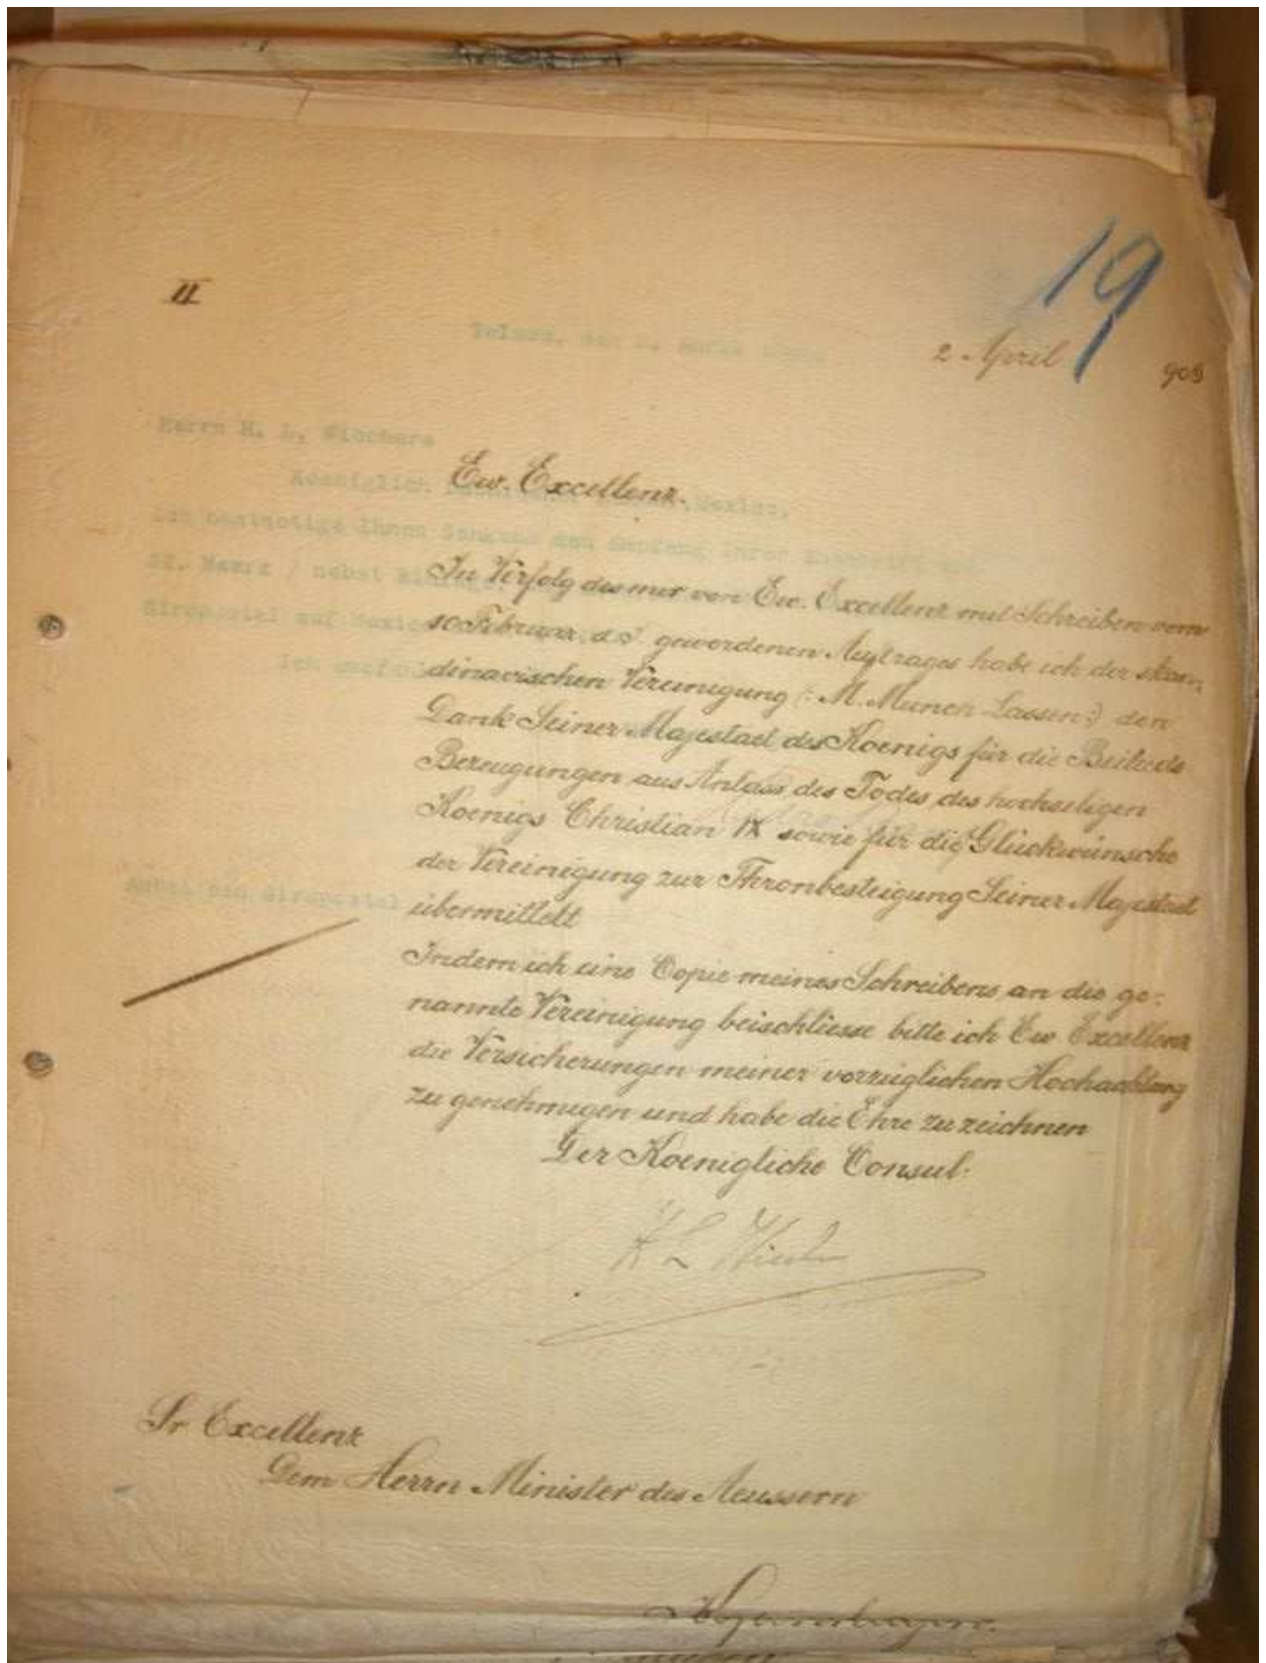 19
II
2 April 906
Herrn H. L. Wiechers
Ew. Excellenz.
In Verfolg des mir von Ew. Excellenz mit Schreiben vom
10 Februar d. J. gewordenen Auftrages habe ich der skan-
dinavischen Vereinigung (: M. Munch Lassen :) den
Dank Seiner Majestaet des Koenigs für die Beileids
Bezeugungen aus Anlass des Todes des hochseligen
Koenigs Christian IX sowie für die Glückwünsche
der Vereinigung zur Thronbesteigung Seiner Majestaet
übermittelt
Indem ich eine Copie meines Schreibens an die ge-
nannte Vereinigung beischliesse bitte ich Ew Excellenz
die Versicherungen meiner vorzüglichen Hochachtung
zu genehmigen und habe die Ehre zu zeichnen
Der Koenigliche Consul.
Sr Excellenz
Dem Herrn Minister des Aeussern
Kopenhagen.